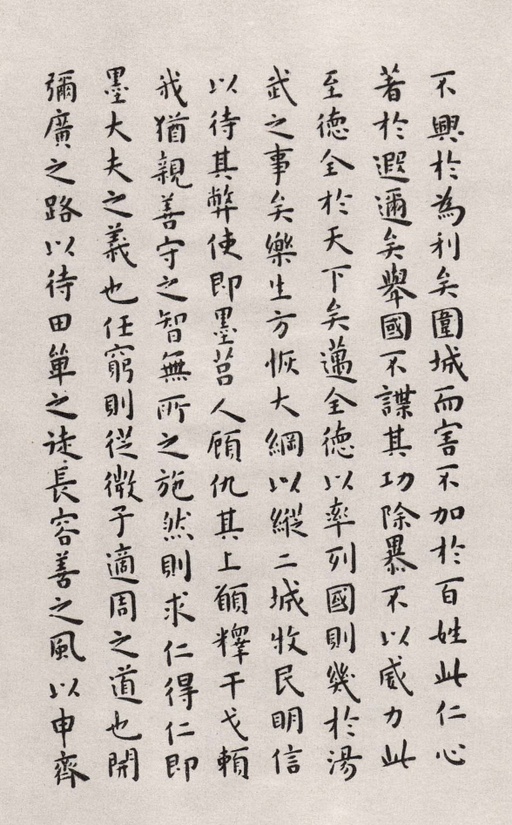 不興於為利矣圍城而害不加於百姓此仁心
著於遐邇矣舉國不諜其功除暴不以威力此
至德全於天下矣邁全德以率列國則幾於湯
武之事矣樂生方恢大綱以縱二城牧民明信
以待其弊使即墨莒人顧仇其上願釋干戈賴
我猶親善守之智無所之施然則求仁得仁即
墨大夫之義也任窮則從微子適周之道也開
彌廣之路以待田單之徒長容善之風以申齊